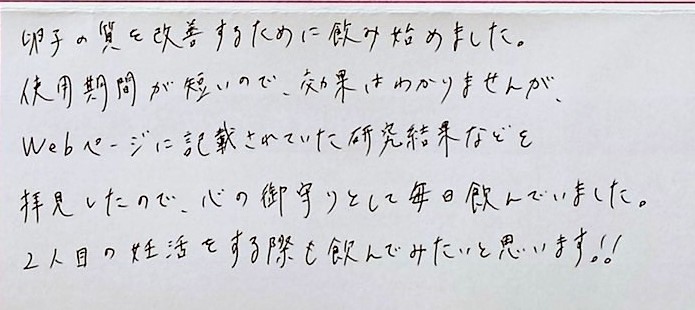 卵子の質を改善するために飲み始めました。
使用期間が短いので、効果はわかりませんが、
Webページに記載されていた研究結果などを
拝見したので、心の御守りとして毎日飲んでいました。
2人目の妊活をする際も飲んでみたいと思います!!